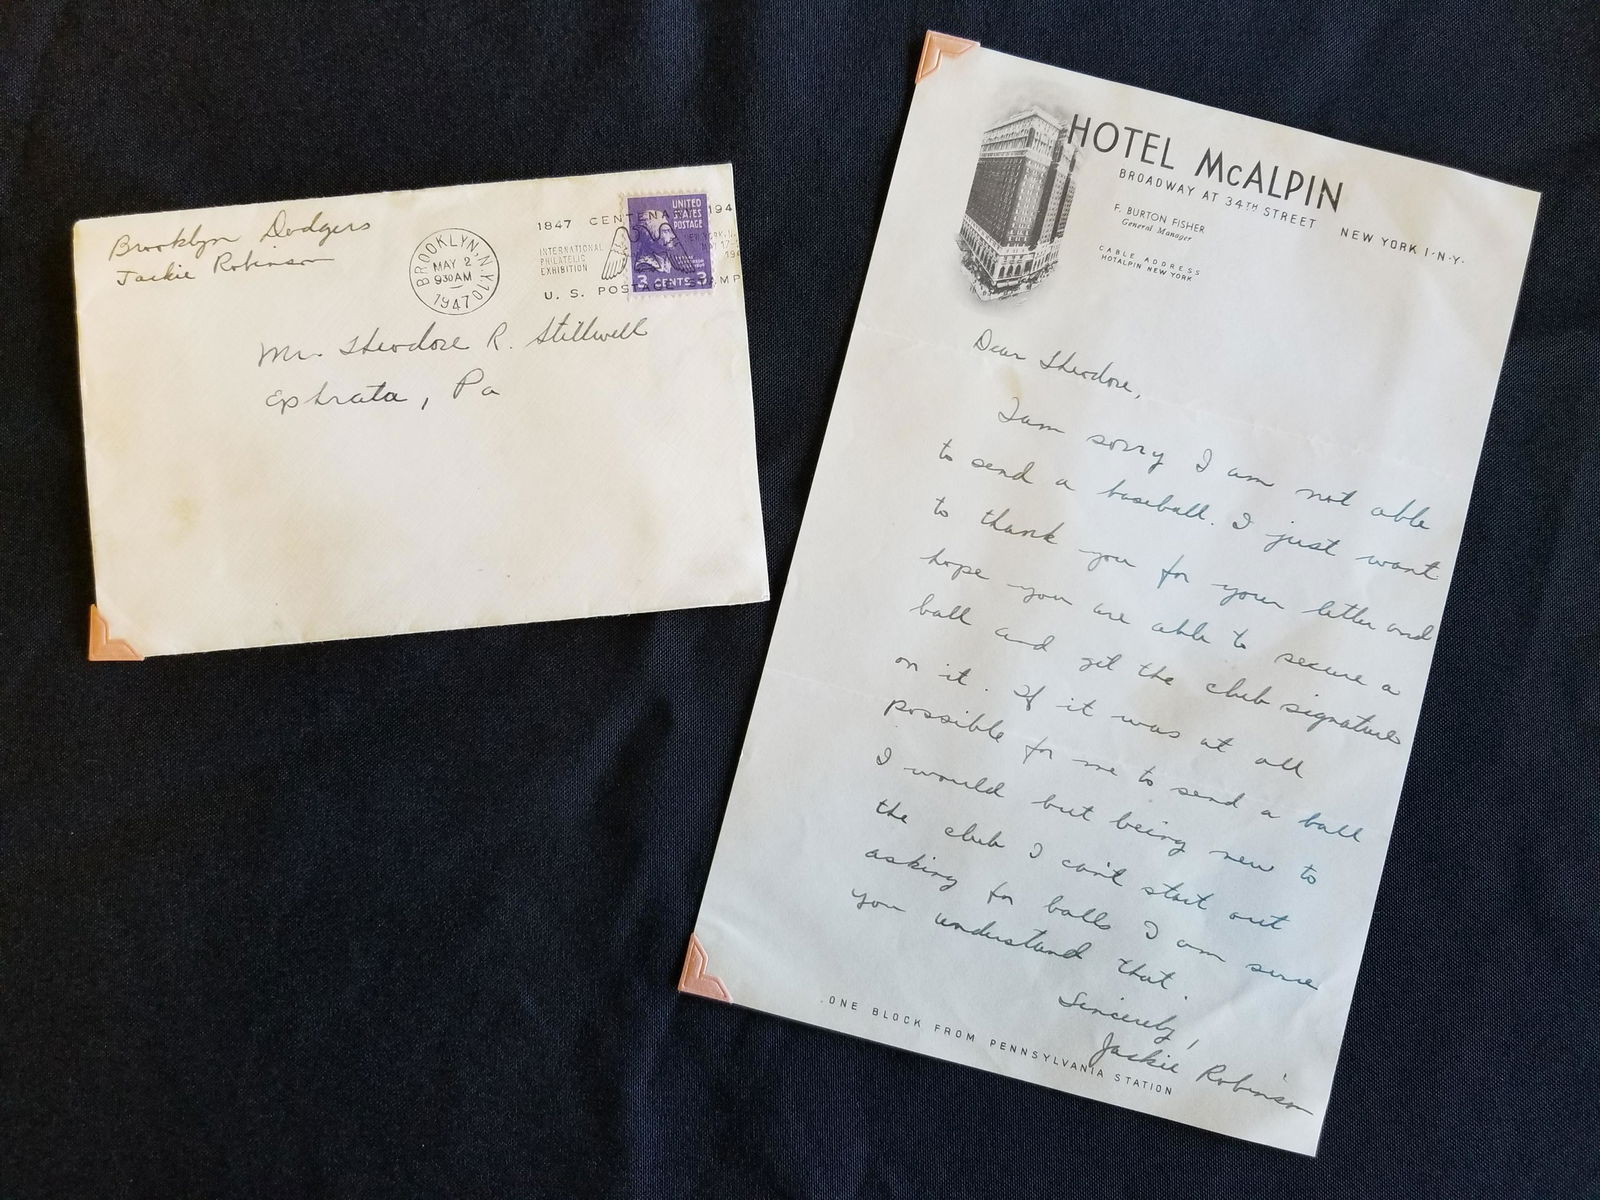 Brooklyn Dodgers
Jackie Robinson
BROOKLYN, N.Y.
MAY 2
930 AM
1947
1847 CENTENA 194
INTERNATIONAL
PHILATELIC
EXHIBITION
U. S. POSTAGE STAMP
UNITED
STATES
POSTAGE
3 CENTS 3
Mr. Theodore R. Stillwell
Ephrata, Pa
HOTEL McALPIN
BROADWAY AT 34TH STREET
NEW YORK 1·N·Y·
F. BURTON FISHER
General Manager
CABLE ADDRESS
HOTALPIN NEW YORK
Dear Theodore,
I am sorry I am not able
to send a baseball. I just want
to thank you for your letter and
hope you are able to secure a
ball and get the club signature
on it. If it was at all
possible for me to send a ball
I would but being new to
the club I can't start out
asking for balls I am sure
you understand that.
Sincerely,
Jackie Robinson
ONE BLOCK FROM PENNSYLVANIA STATION